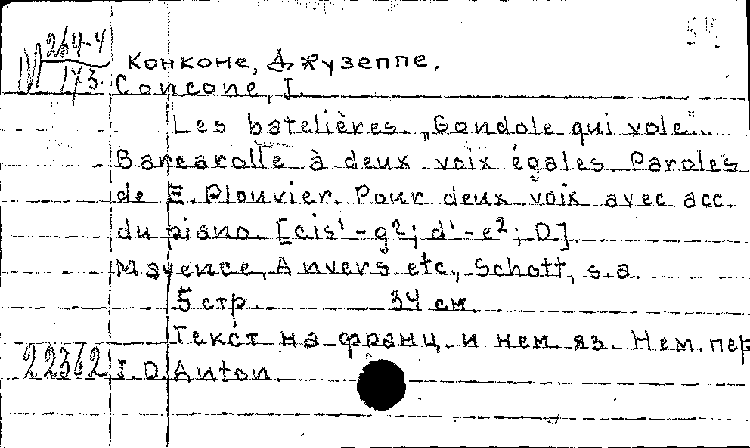 М 264-4 / 173. Конконе, Джузеппе.
Concone, I.
Les batelières. „Gondole qui vole"..
Barcarolle à deux voix égales Paroles
de E. Plouvier. Pour deux voix avec acc.
du piano. [cis¹-g²; d¹-e²; D.].
Mayence, Anvers etc., Schott, s.a.
5 стр. 34 см.
Текст на франц. и нем яз. Нем. пер
22362 I.D. Anton.